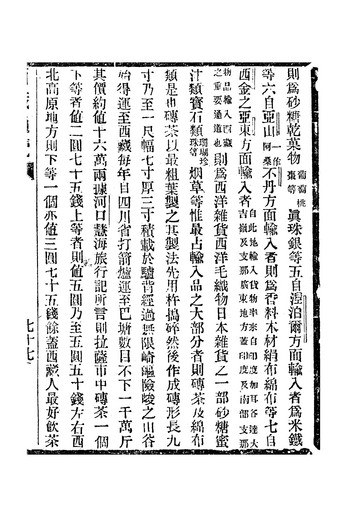 則爲砂糖乾菓物葡萄桃棗等眞珠銀等五自涅泊爾方面輸入者爲米鐵
等六自亞山一作阿桑不丹方面輸入者則爲香料木材絹布綿布等七自
西金之亞東方面輸入者自此地輸入貨物率來自印度加耳各達大吉嶺及支那廣東地方蓋印度及南部支那
物品輸入西藏之重要通道也則爲西洋雜貨西洋毛織物日本雜貨之一部砂糖蜜
汁類寶石類珊瑚珍珠等烟草等惟最占輸入品之大部分者則磚茶及綿布
類是也磚茶以最粗葉製之其製法先用杵搗碎然後作成磚形長九
寸乃至一尺幅七寸厚三寸積載於驢背經過無限崎嶇險峻之山谷
始得運至西藏每年自四川省打箭爐運至巴塘數目不下一千萬斤
其價約値十六萬兩據河口慧海旅行記所言則拉薩市中磚茶一個
下等者値二圓七十五錢上等者則値五圓乃至五圓五十錢左右西
北高原地方則下等一個亦値三圓七十五錢餘蓋西藏人最好飲茶
九十七